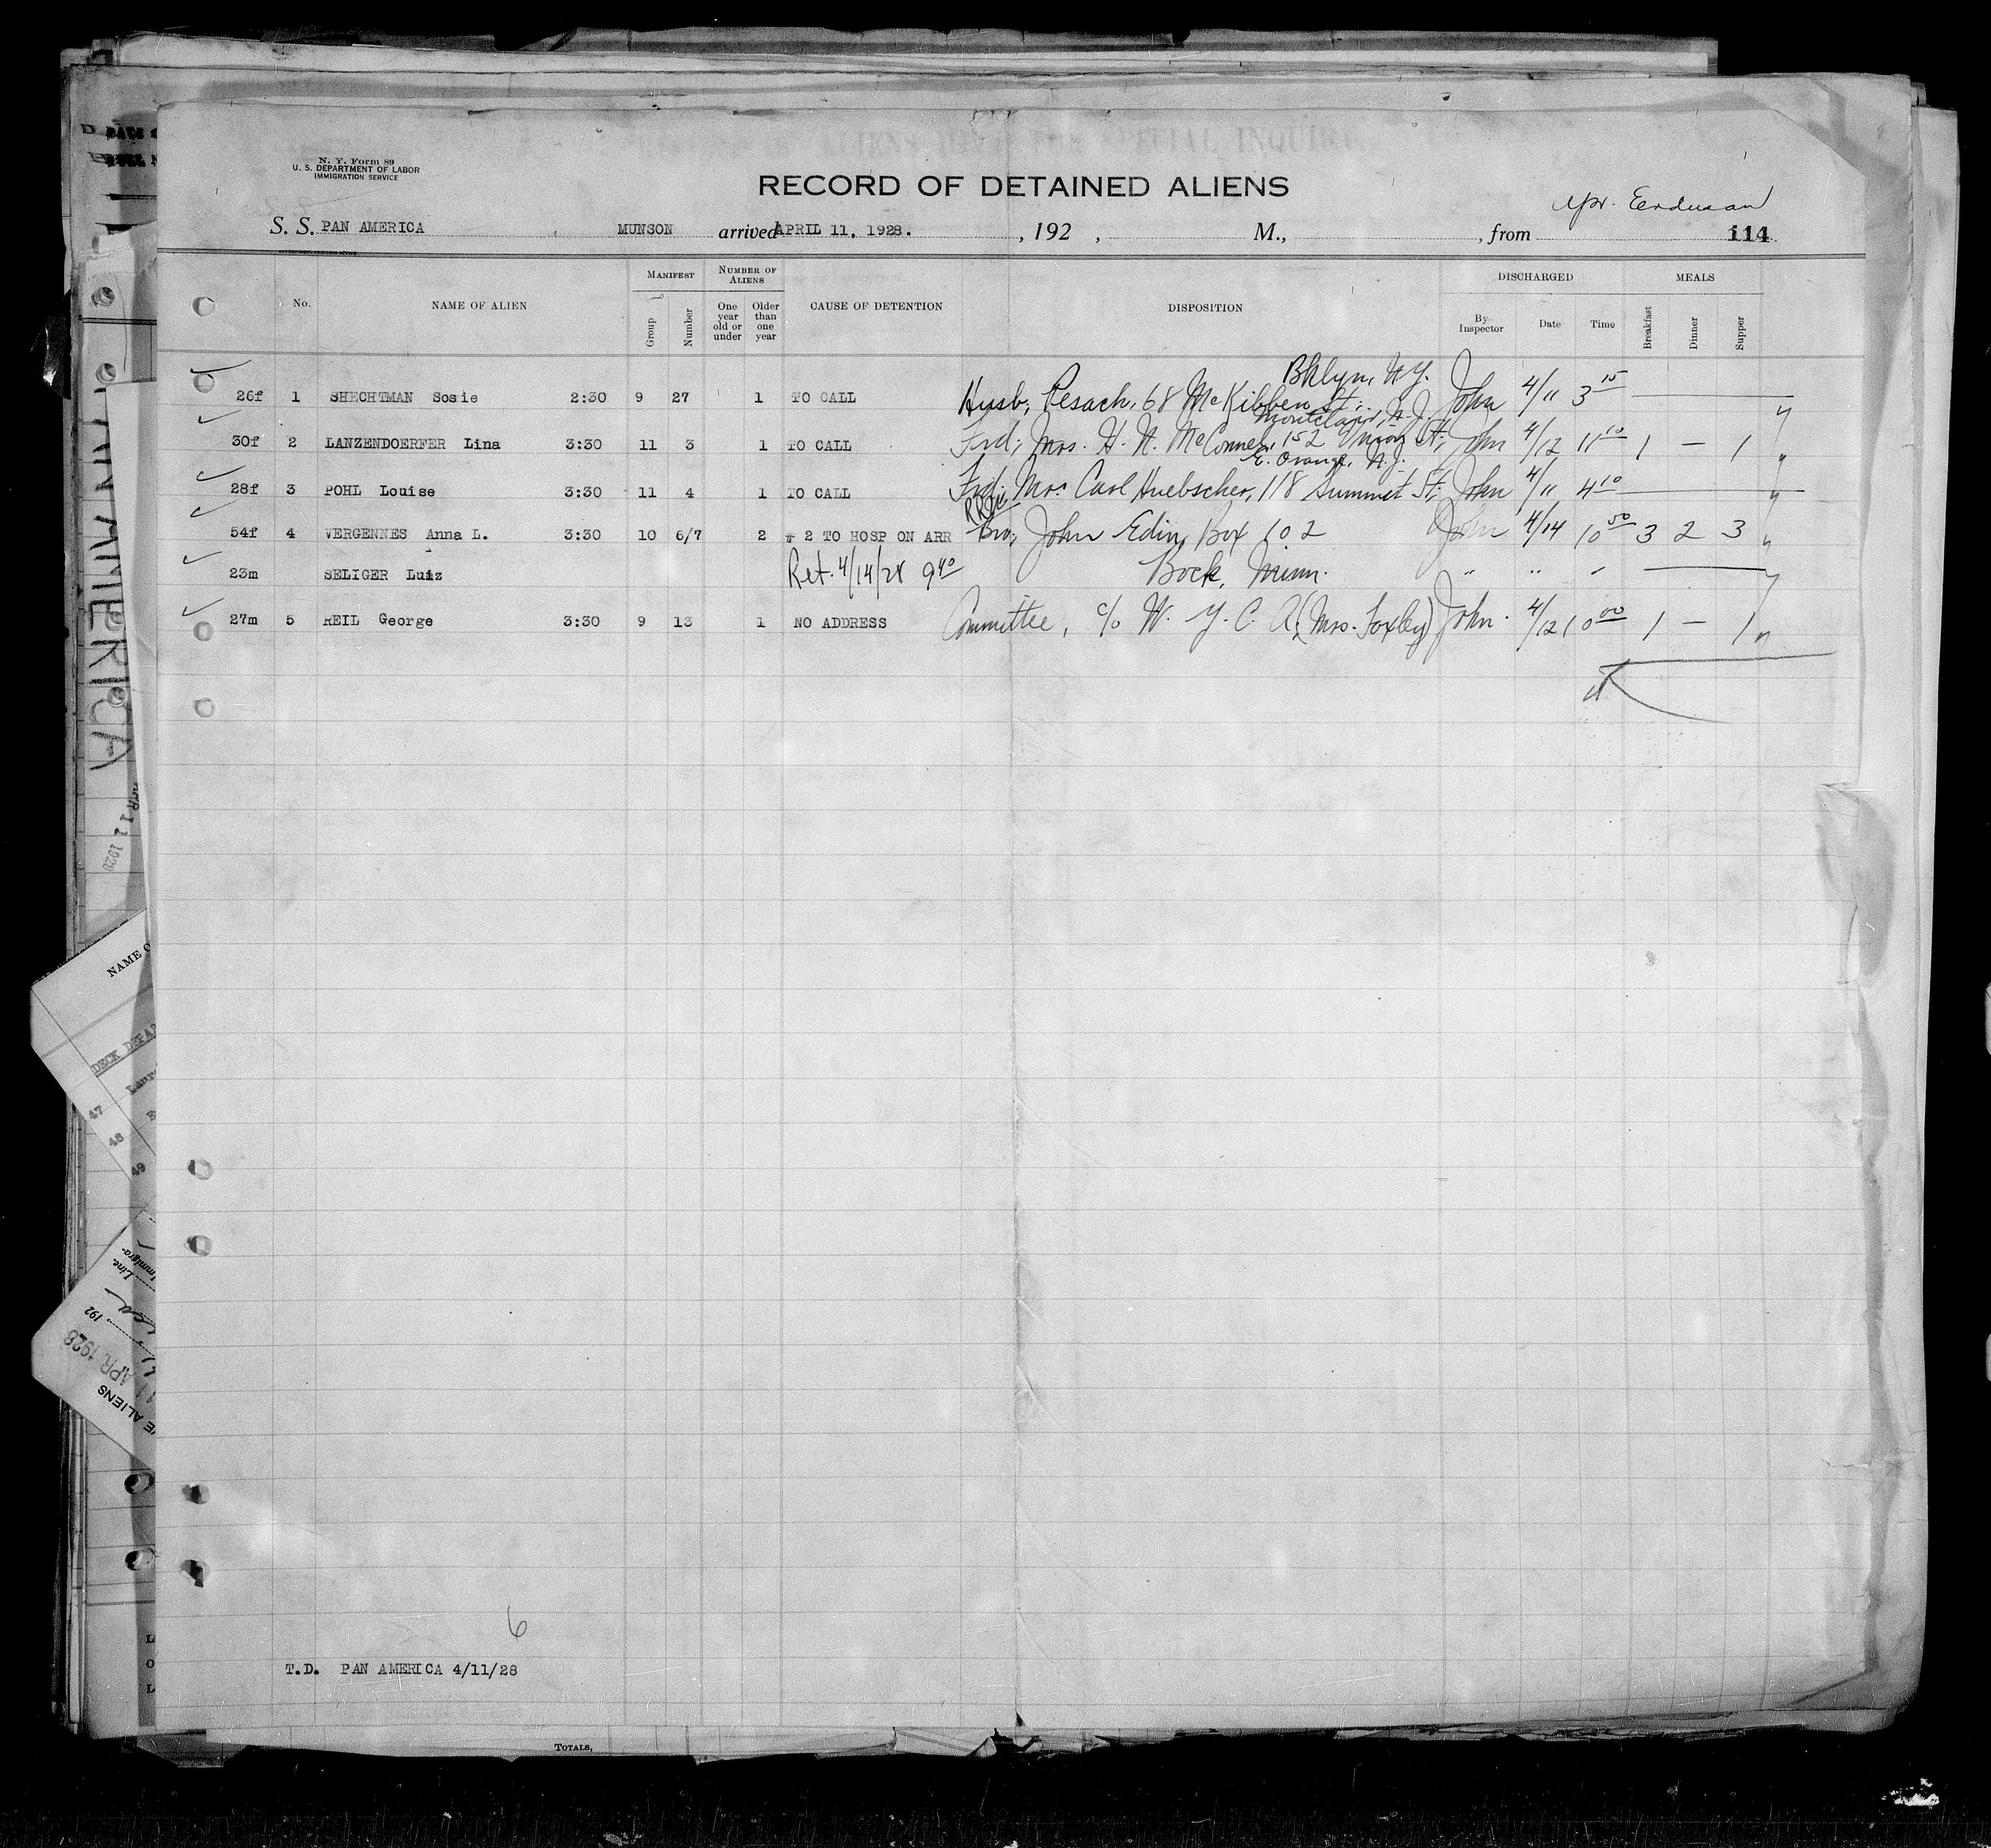 N. Y. Form 89
U. S. DEPARTMENT OF LABOR
IMMIGRATION SERVICE
RECORD OF DETAINED ALIENS
S. S. PAN AMERICA MUNSON arrived APRIL 11, 1928. , 192 , M., , from 114
No. NAME OF ALIEN MANIFEST Group Number NUMBER OF ALIENS One year old or under Older than one year CAUSE OF DETENTION DISPOSITION DISCHARGED By Inspector Date Time MEALS Breakfast Dinner Supper
Bklyn, N.Y.
26f 1 SHECHTMAN Sosie 2:30 9 27 1 TO CALL Husb, Pesach, 68 McKibben St; John 4/11 3 15
Montclair, N.J.
30f 2 LANZENDOERFER Lina 3:30 11 3 1 TO CALL Frd; Mrs. H. N. McConnel, 152 Union St; John 4/12 11 10 1 — 1
E. Orange, N.J.
28f 3 POHL Louise 3:30 11 4 1 TO CALL Frd; Mrs Carl Huebscher, 118 Summit St; John 4/11 4 10
54f 4 VERGENNES Anna L. 3:30 10 6/7 2 # 2 TO HOSP ON ARR Bro; John Edin, Box 102 John 4/14 10 50 3 2 3
23m SELIGER Luiz Ret. 4/14/28 9 40 Bock, Minn. " " "
27m 5 REIL George 3:30 9 13 1 NO ADDRESS Committee, c/o W. Y. C. A. (Mrs. Foxley) John. 4/12 10 00 1 — 1
6
T.D. PAN AMERICA 4/11/28
TOTALS,
PAN AMERICA
APR 11 1928
NAME O
DECK DEPAR
47
48
49
Line.
Immigra-
192
APR 1928
E ALIENS